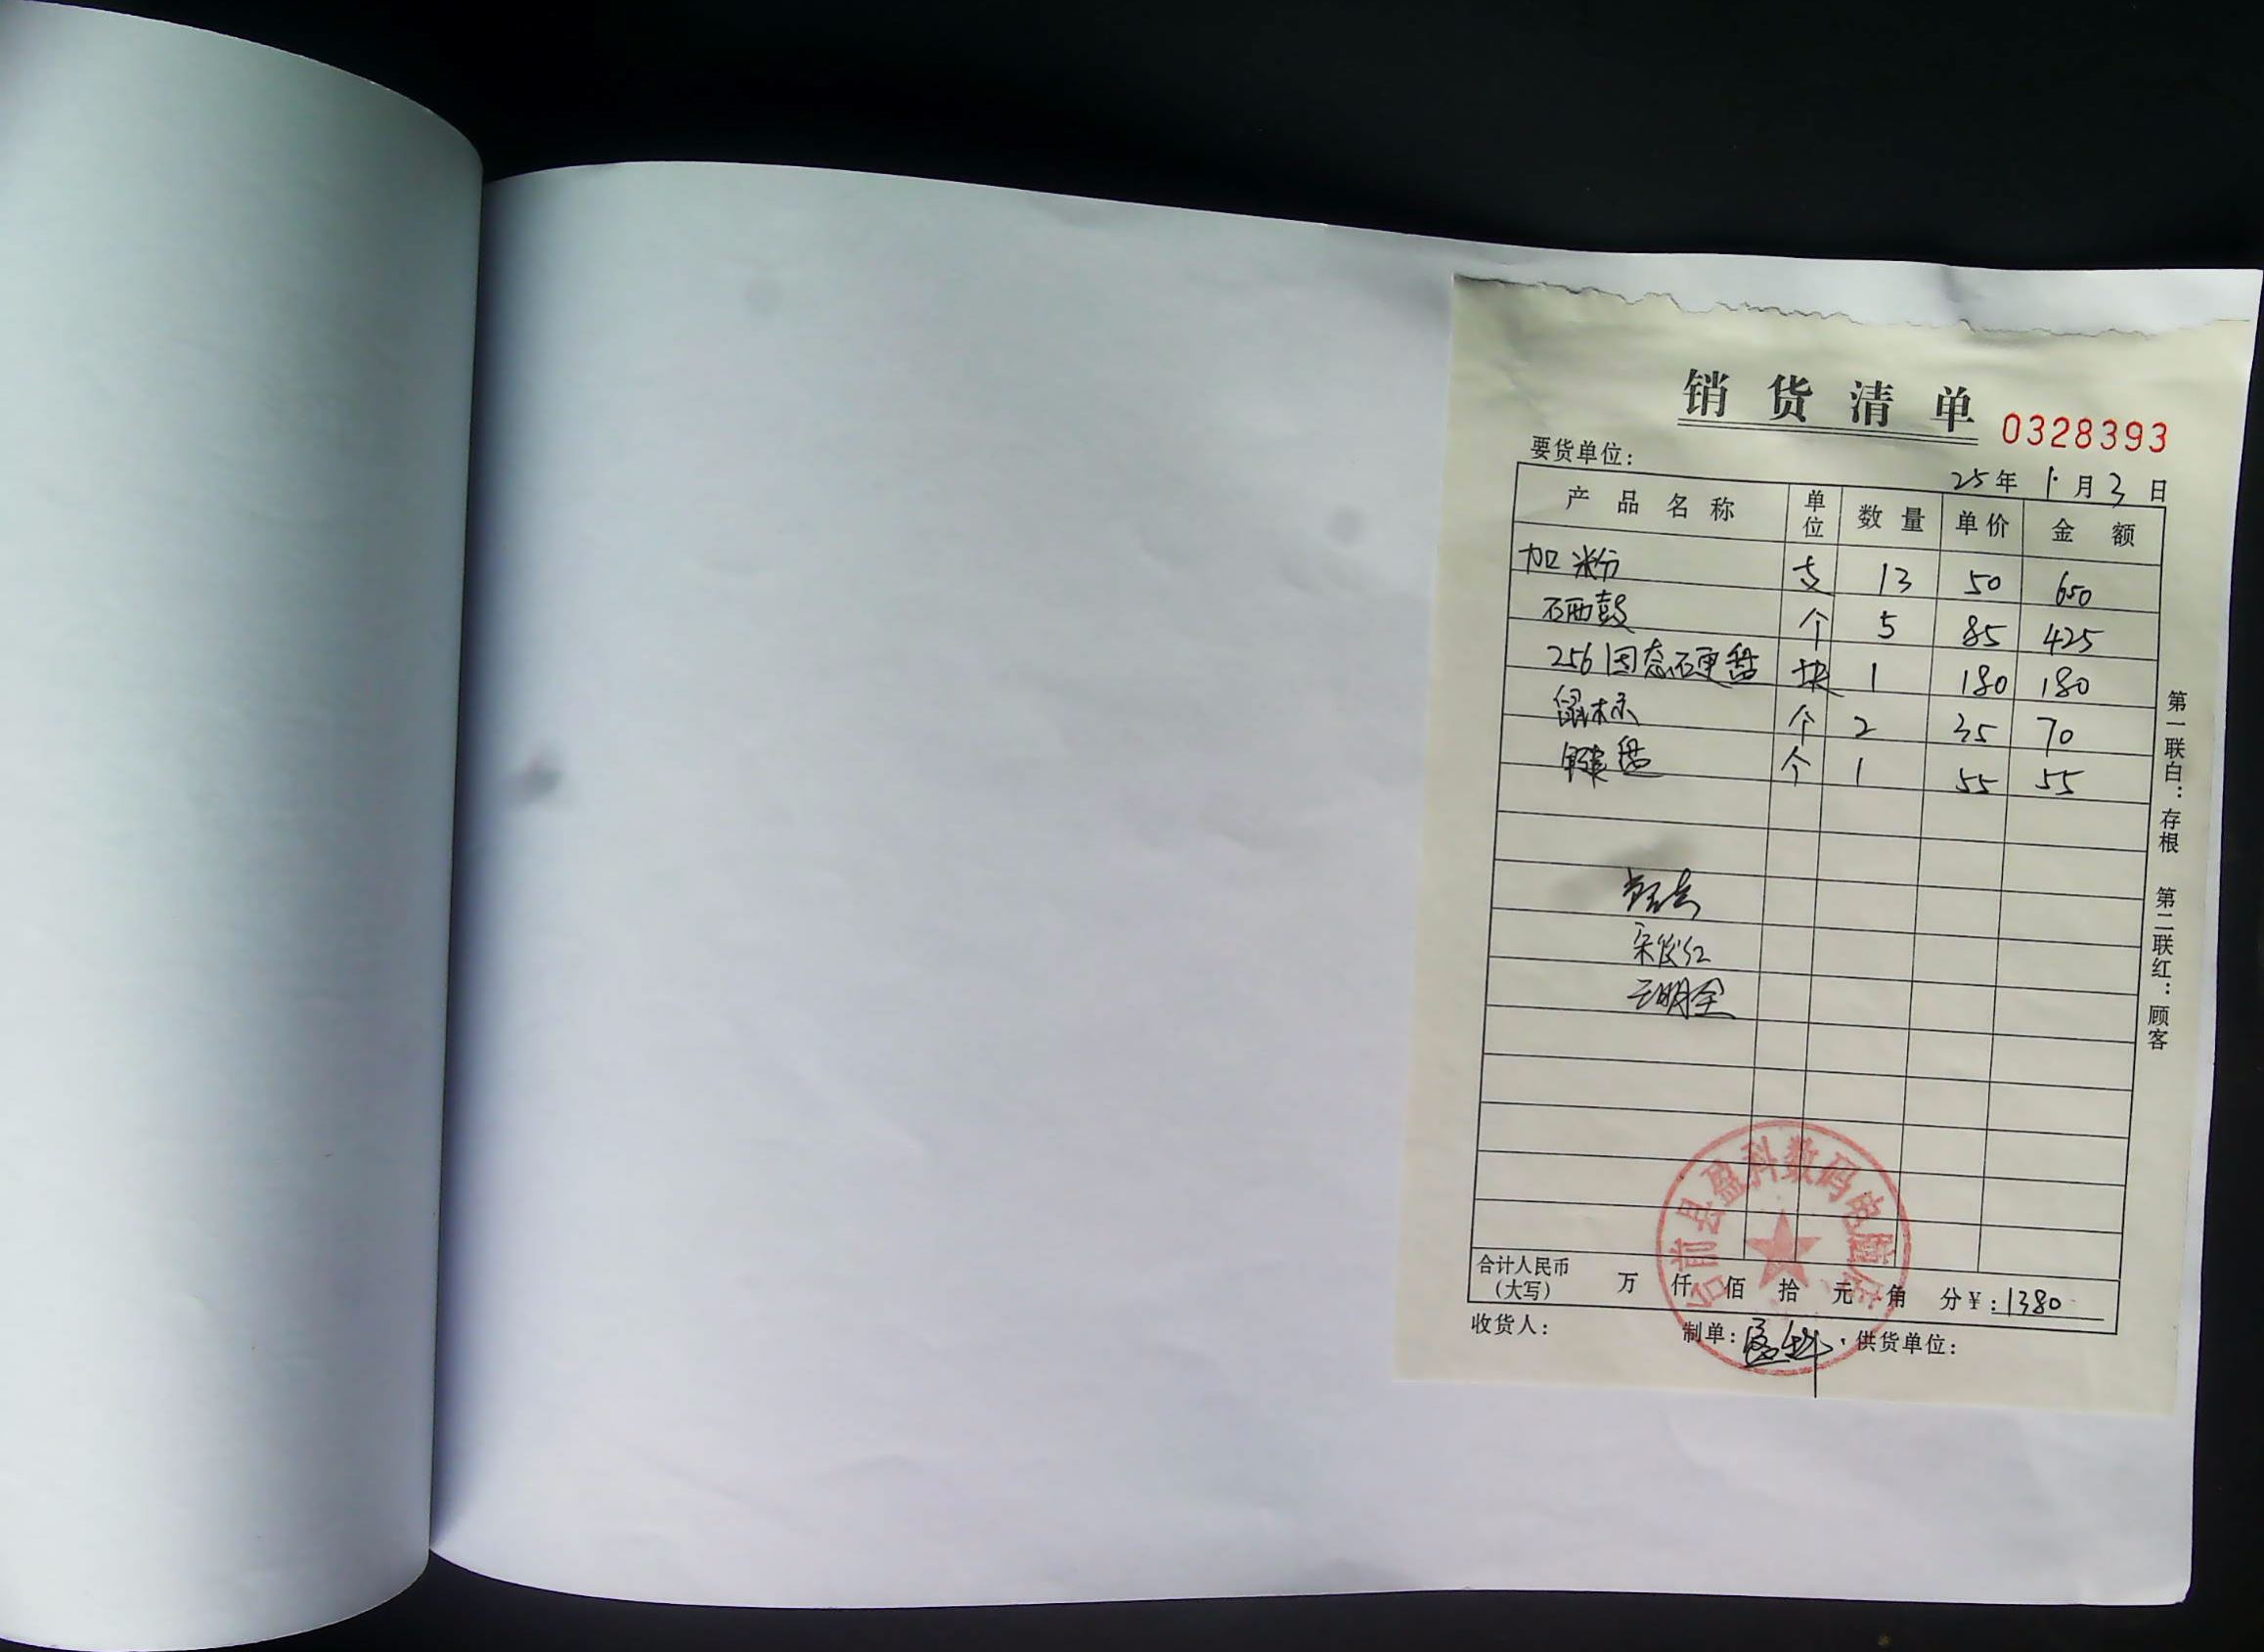 销货清单 0328393
要货单位:
25年 1月 3日
产品名称 单位 数量 单价 金额
加粉 支 13 50 650
硒鼓 个 5 85 425
256固态硬盘 块 1 180 180
鼠标 个 2 35 70
键盘 个 1 55 55
合计人民币(大写) 万 仟 佰 拾 元 角 分¥:1380
收货人: 制单:盈科 供货单位:
第一联白:存根 第二联红:顾客
台前县盈科数码电脑店